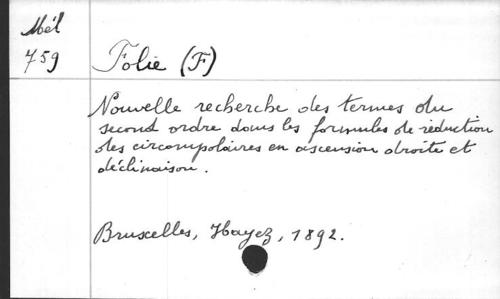 Mél
759
Folie (F)
Nouvelle recherche des termes du
second ordre dans les formules de réduction
des circompolaires en ascension droite et
déclinaison.
Bruxelles, Hayez, 1892.